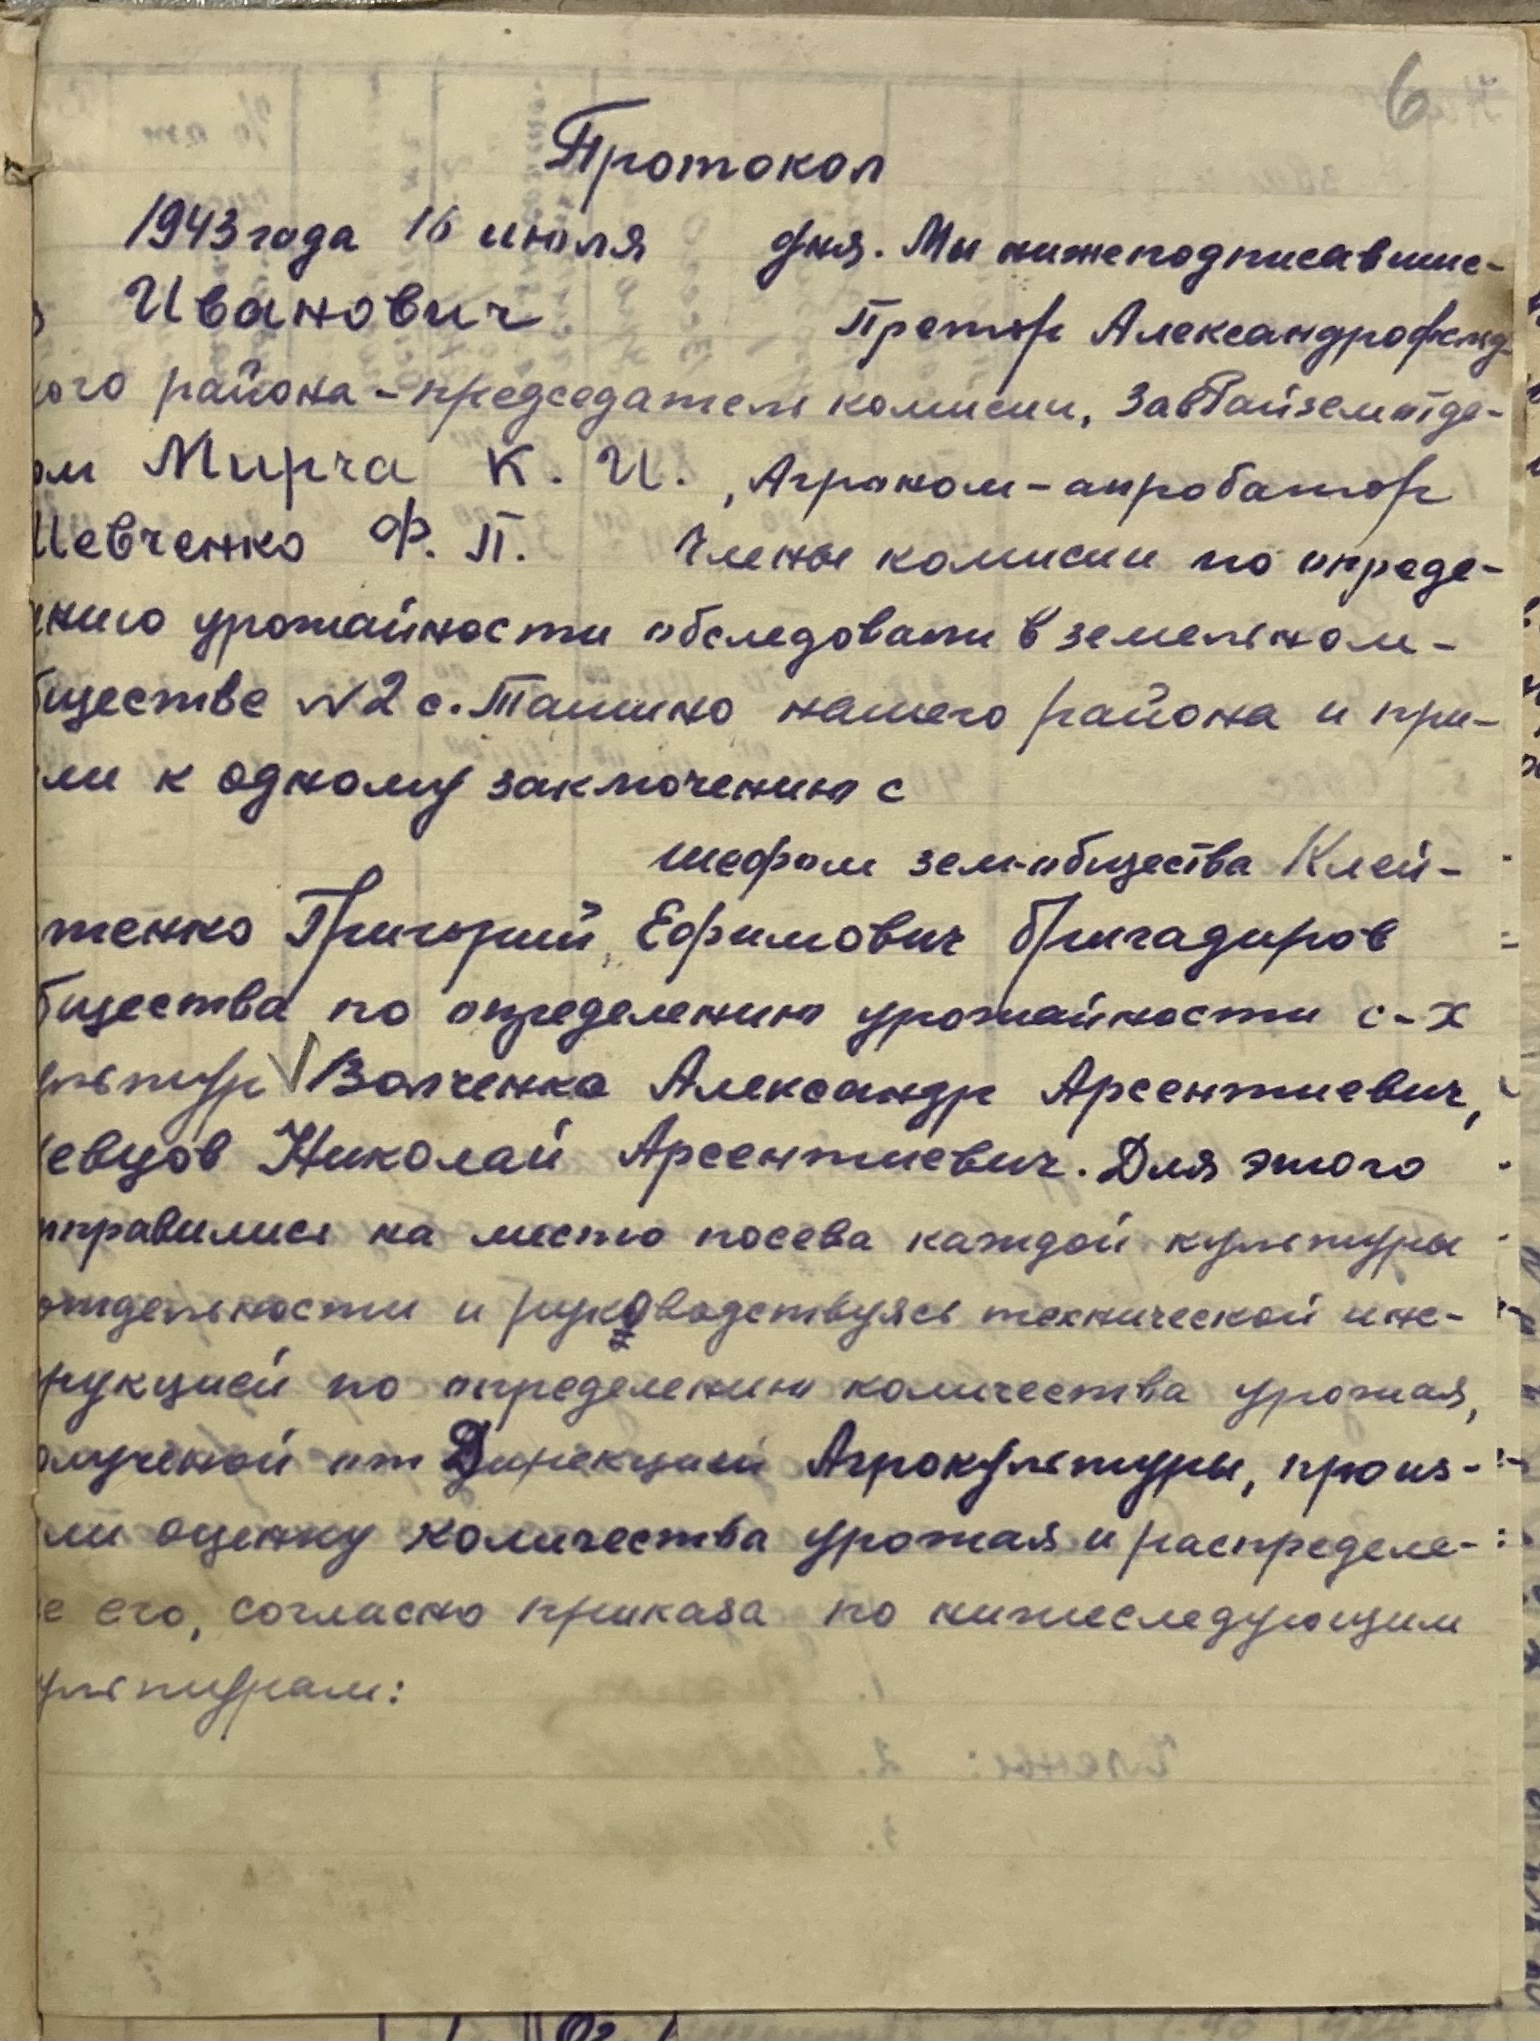 6
Протокол
1943 года 16 июля дня. Мы нижеподписавшие-
Иванович Претор Александрофельд-
кого района – председатель комисии, ЗавРайземотде-
ом Мирча К. И. , Агроном – апробатор
Шевченко Ф. П. Члены комисии по опреде-
нию урожайности обследовали в земельном-
бществе №2 с. Ташино нашего района и при-
ли к одному заключению с
шефом земобщества Клей-
менко Григорий, Ефимович бригадиров
бщества по определению урожайности с-х
льтур √ Волченко Александр Арсентиевич,
евцов Николай Арсентиевич. Для этого
правились на место посева каждой культуры
отдельности и руководствуясь технической инс-
рукцией по определению количества урожая,
олученой от Дирекцией Агрокультуры, произ-
ли оценку количества урожая и распределе-
е его, согласно приказа по нижеследующим
ультурам:
Члены: 2.
3.